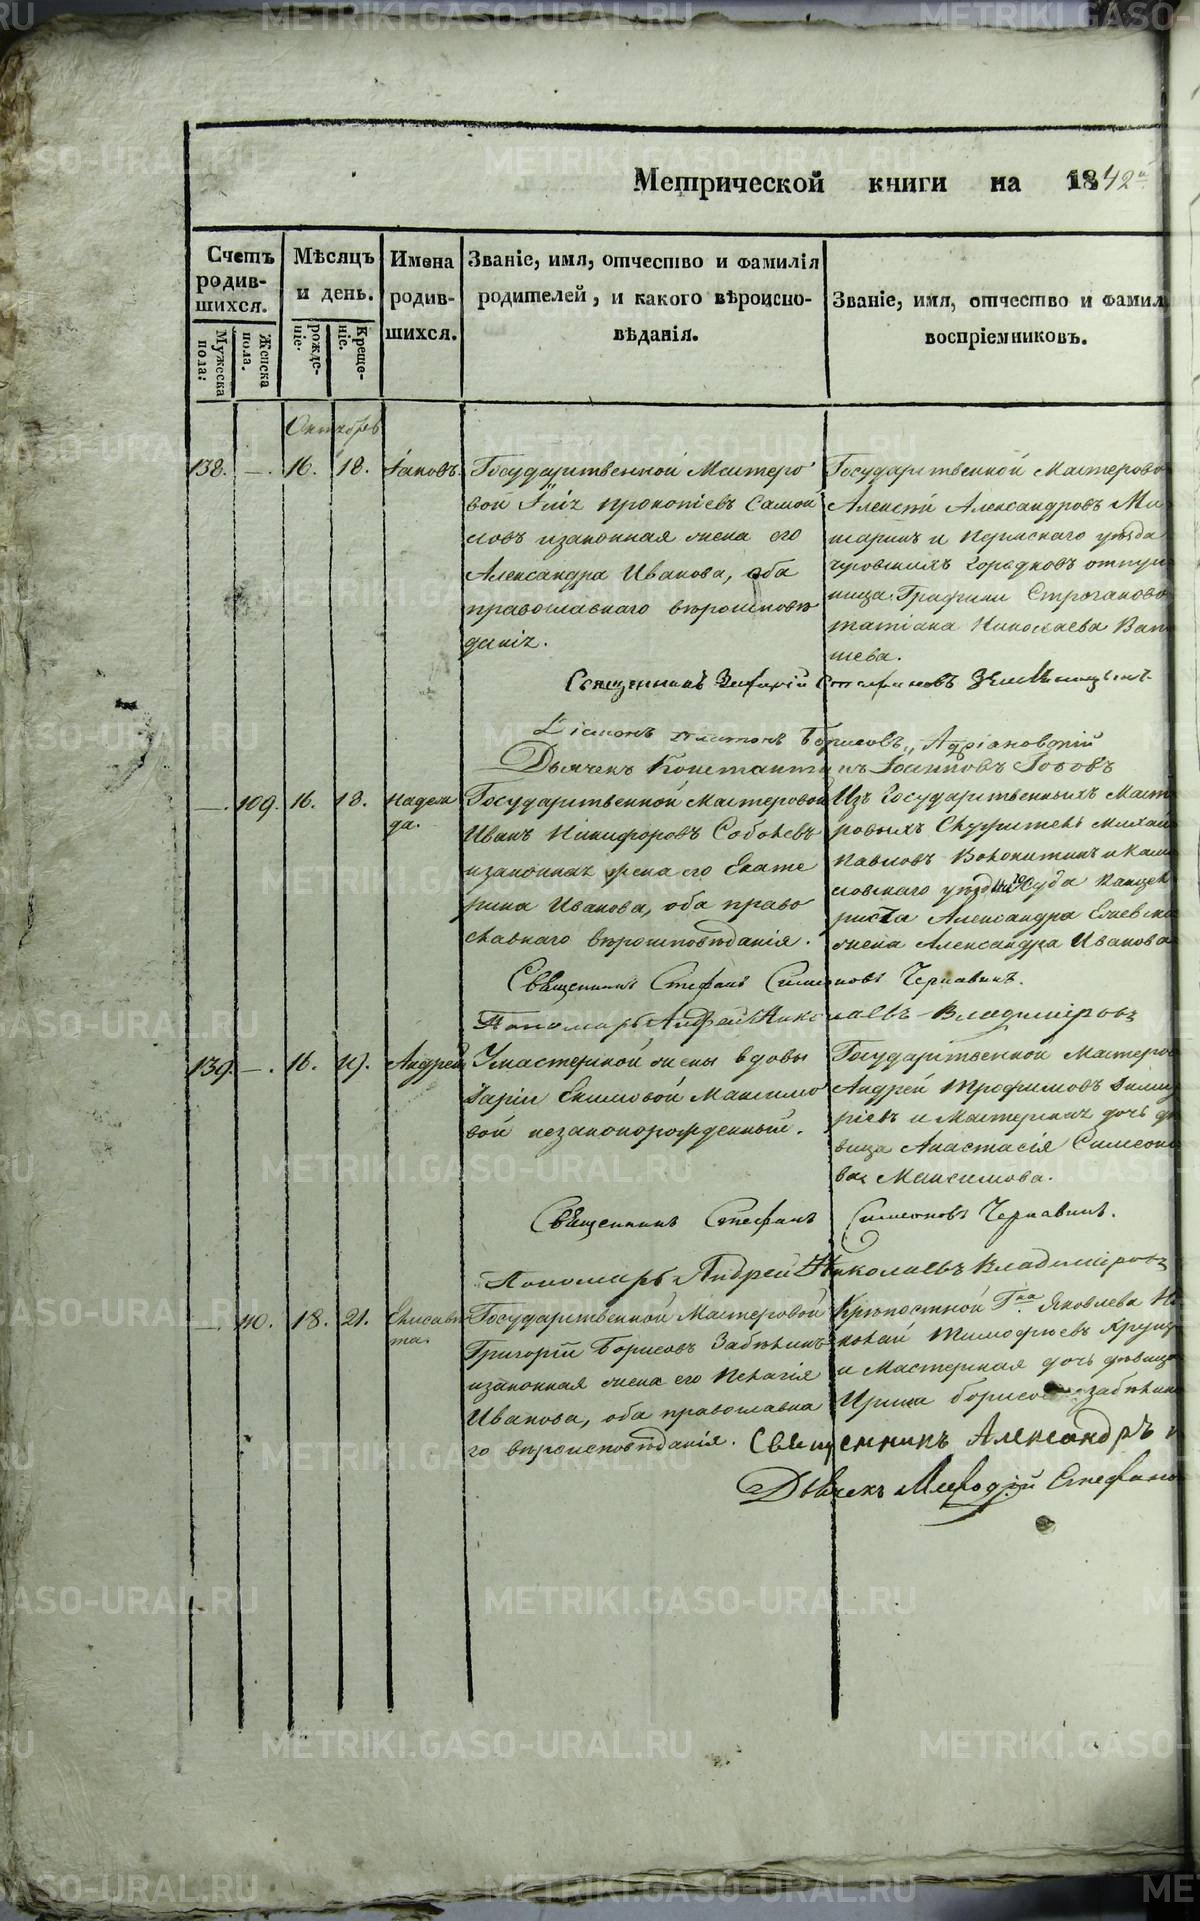 Метрической книги на 1842й
Счетъ родив-шихся.
Мужеска пола.
Женска пола.
Мѣсяцъ и день.
рожде-ніе.
Креще-ніе.
Имена родив-шихся.
Званіе, имя, отчество и фамилія
родителей, и какого вѣроиспо-
вѣданія.
Званіе, имя, отчество и фамил
воспріемниковъ.
Октябрь
138. — 16. 18. Іаковъ
Государственной Мастеро
вой Прокопіевъ Самой
ловъ изаконная жена его
Александра Иванова, оба
православнаго вѣроисповѣ
данія.
Государственной Мастерово
Алексѣй Александровъ
и Пермскаго уѣзда
Городковъ отпу
Графини Строгоново
татіана Николаева
шева.
Священникъ Стефановъ Земляницынъ
Діаконъ Платонъ Борисовъ Адріановскій
Дьячекъ Константинъ Іосифовъ Поповъ
— 109. 16. 18. Надеж
да.
Государственной Мастеровой
Иванъ Никифоровъ Соболевъ
изаконная жена его Екате
рина Иванова, оба право
славнаго вѣроисповѣданія.
Изъ Государственныхъ Масте
ровыхъ Служитель Михаил
Павловъ Волокитинъ и
ловскаго уѣзднаго Суда Канцеля
риста Александра
жена Александра Иванова
Священникъ Стефанъ Симеоновъ Чернавинъ.
Пономарь Андрей Николаевъ Владиміровъ
139. — 16. 19. Андрей
Умастерской жены вдовы
Даріи Екимовой Максимо
вой незаконорожденный.
Государственной Мастеров
Андрей Трофимовъ Дмит
ріевъ и Мастерская дочь дѣ
вица Анастасія Симеоно
ва Максимова.
Священникъ Стефанъ Симеоновъ Чернавинъ.
Пономарь Андрей Николаевъ Владиміровъ
— 110. 18. 21. Елисаве
та.
Государственной Мастеровой
Григорій Борисовъ Забѣлинъ
изаконная жена его Пелагія
Иванова, оба православна
го вѣроисповѣданія.
Крѣпостной Гна Яковлева Ни
колай Тимофѣевъ
и Мастерская дочь дѣвица
Ирина Борисова Забѣлина
Священникъ Александръ
Дьячекъ Меѳодій Стефано
METRIKI.GASO-URAL.RU